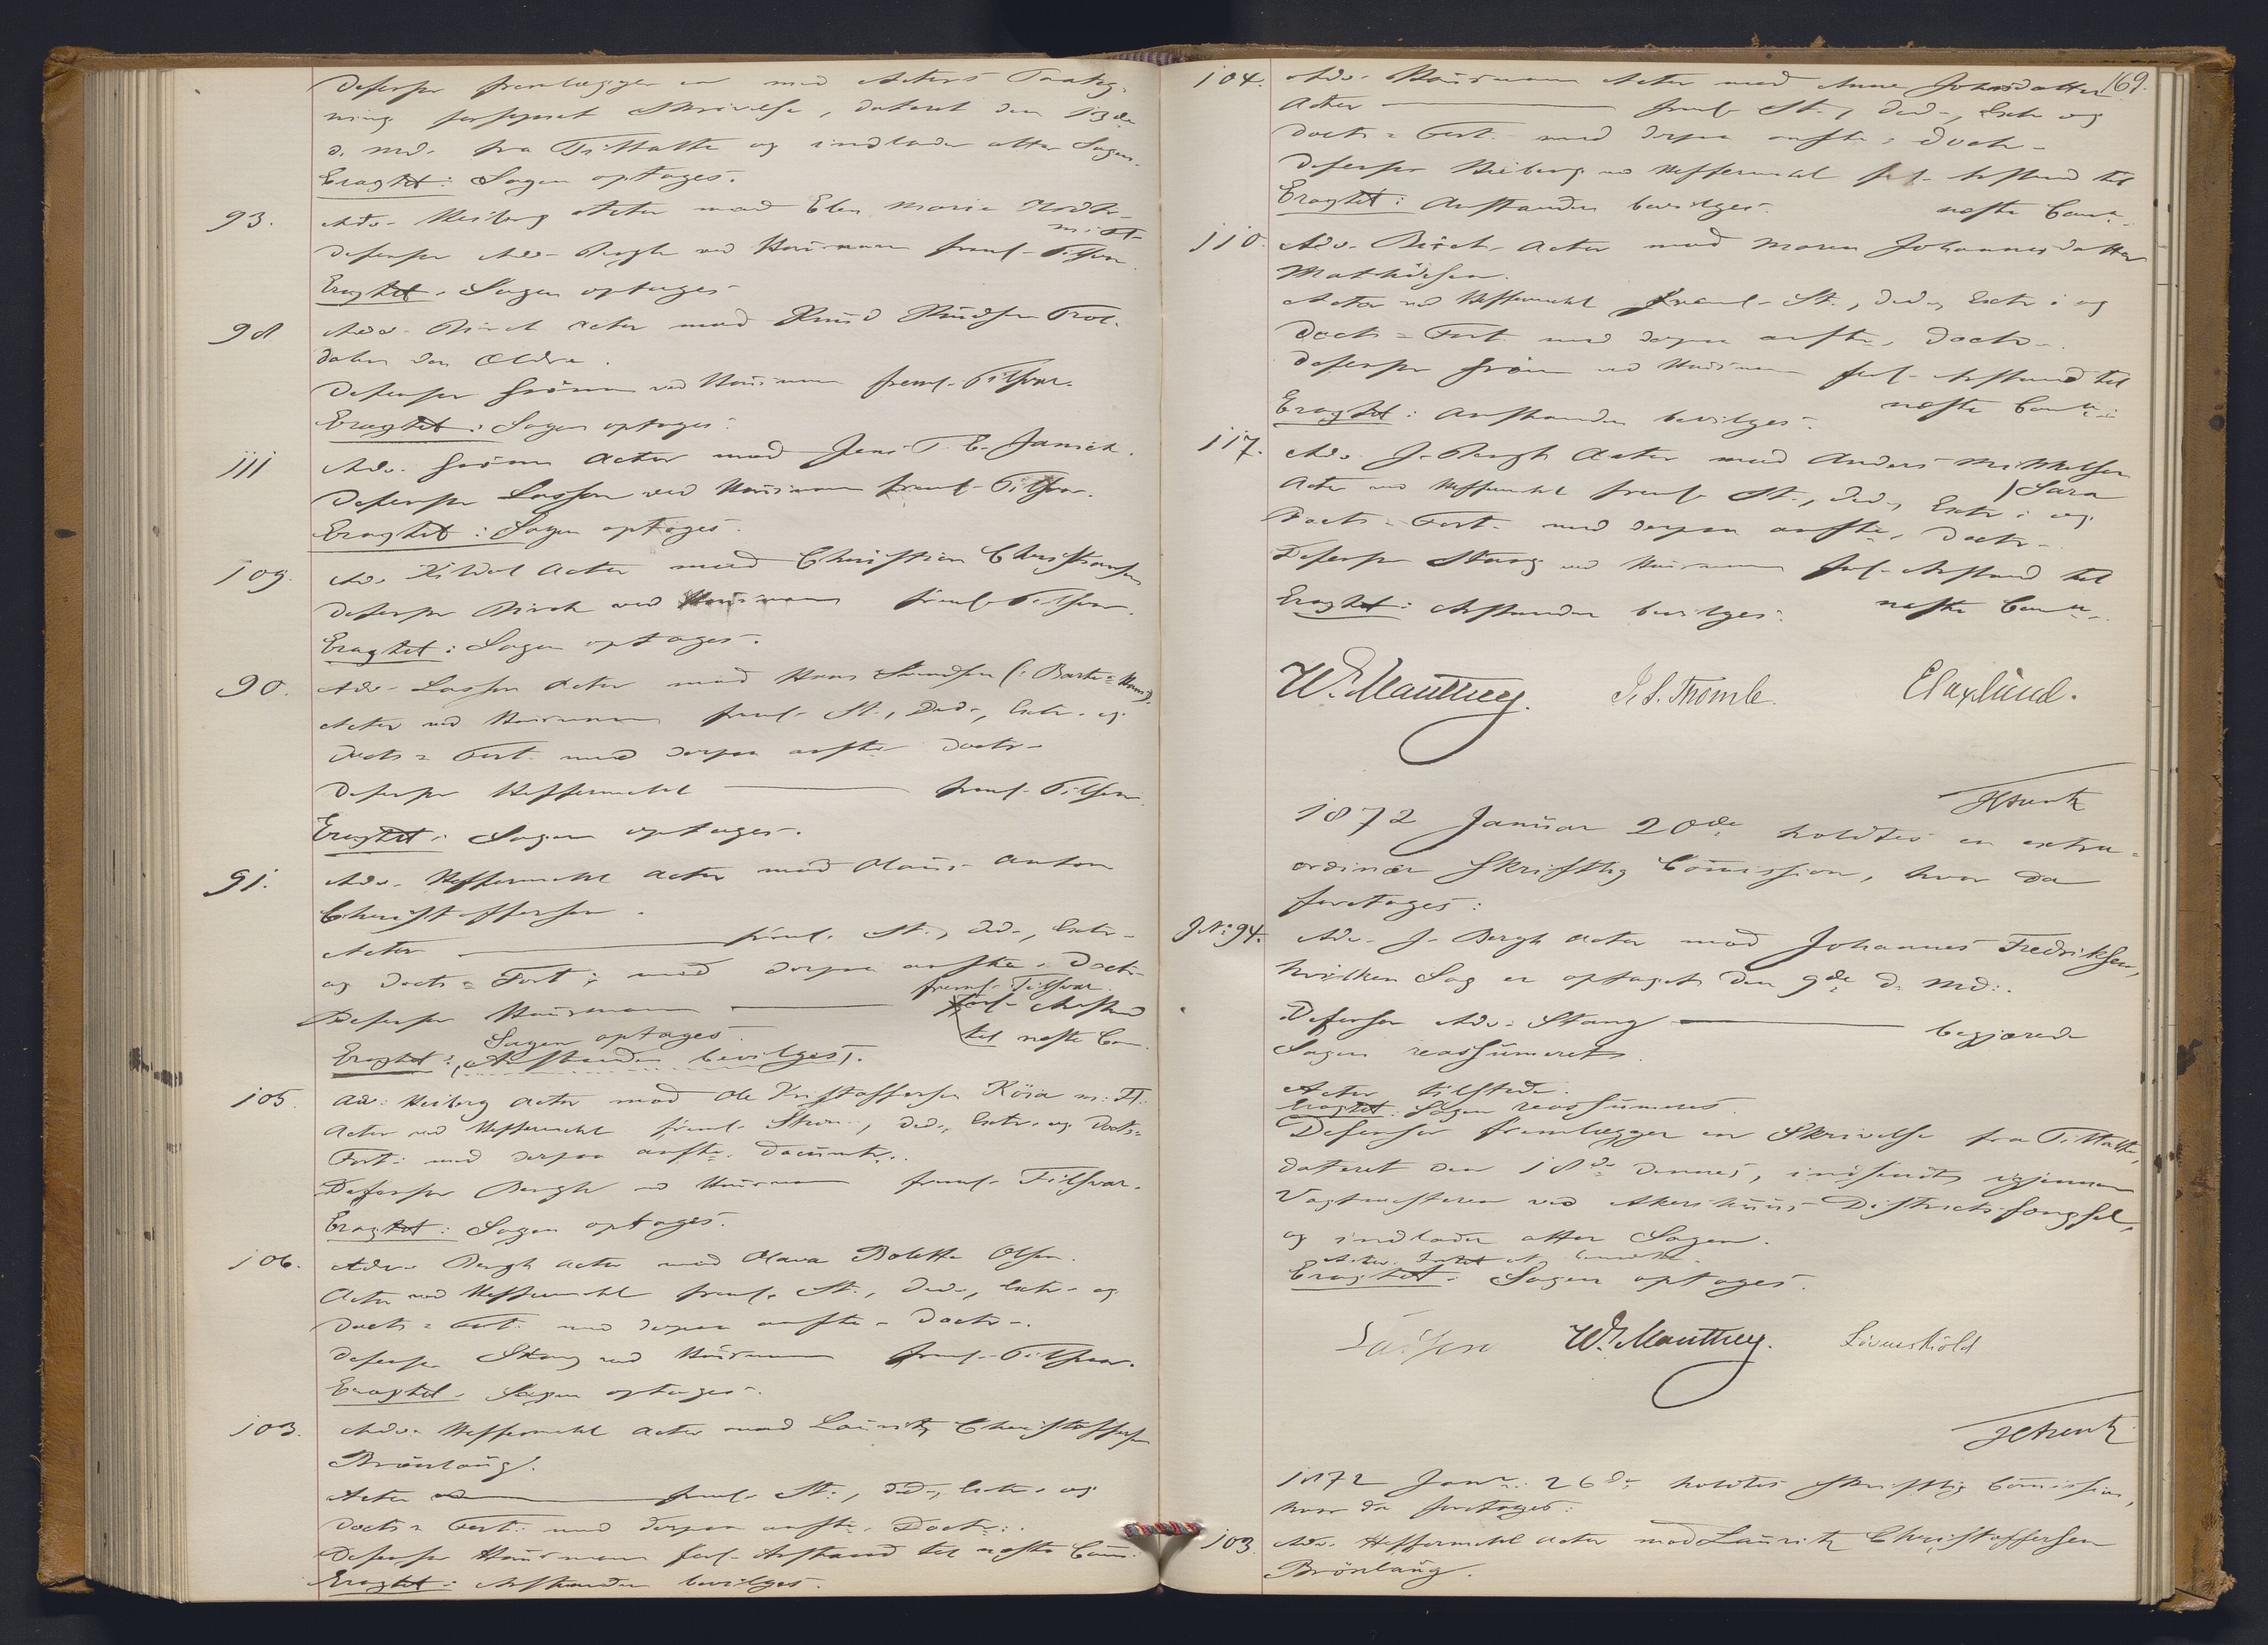 Defensor fremlægger en med Actors Paateg-
ning forsynet Skrivelse, dateret den 13de
d. Md. fra Tiltalte og indlader atter Sagen.
Eragtet: Sagen optages.
93. Adv. Heiberg Acter mod Elen Maria
Defensor Adv. Bergh ved Haüsmann freml. Tilsvar.
Eragtet: Sagen optages.
98 Adv. Birch Acter mod Knüd Knüdsen Trol-
dalen den Ældre.
Defensor Grönn ved Haüsmann freml. Tilsvar.
Eragtet: Sagen optages.
111 Adv. Grönn Acter mod Jens T. E. Jansen.
Defensor Lassen ved Haüsmann freml. Tilsvar.
Eragtet: Sagen optages.
109. Adv. Kildal Acter mod Christian Christiansen
Defensor Birch ved Haüsmann freml. Tilsvar.
Eragtet: Sagen optages.
90. Adv. Lassen Acter mod Hans
Acter ved Haüsmann freml. St., Ded., Extr. og
Docts = Fort. med derpaa anfte Doctr.
Defensor Heffermehl freml. Tilsvar.
Eragtet: Sagen optages.
91. Adv. Heffermehl Acter mod Olaüs Anton
Christoffersen.
Acter freml. St., Ded., Extr.
og Docts = Fort. med derpaa anfte Doctr.
freml. Tilsvar.
Defensor Haüsmann forl. Anstand
til neste Com.
Sagen optages.
Eragtet: (Anstanden bevilges).
105. Adv. Heiberg Acter mod Ole Kristoffersen Röia m. Fl.
Acter ved Heffermehl freml. Stevn., Ded., Extr. og Docts-
Fort. med derpaa anfte. Documtr.
Defensor Bergh ved Haüsmann freml. Tilsvar.
Eragtet: Sagen optages.
106. Adv. Bergh Acter mod Olava Bolette Olsen.
Acter ved Heffermehl freml. St., Ded., Extr. og
Docts = Fort. med derpaa anfte Doctr.
Defensor Stang ved Haüsmann freml. Tilsvar.
Eragtet: Sagen optages.
103. Adv. Heffermehl Acter mod Laüritz Christoffersen
Brönlaüg.
Acter freml. St., Ded., Extr. og
Docts = Fort. med derpaa anfte. Doctr.
Defensor Haüsmann forl. Anstand til neste Com.
Eragtet: Anstanden bevilges.
169.
104. Adv. Haüsmann Acter mod Anne Johnsdatter
Acter freml. St., Ded., Extr. og
Docts = Fort. med derpaa anfte Doctr.
Defensor Heiberg ved Heffermehl forl. Anstand til
neste Comn.
Eragtet: Anstanden bevilges.
110. Adv. Birch Acter mod Maren Johannesdatter
Mathiesen.
Acter ved Heffermehl freml. St., Ded., Extr. og
Docts = Fort. med derpaa anfte, Doctr.
Defensor Grönn ved Haüsmann forl. Anstand til
neste Comn.
Eragtet: Anstanden bevilges.
117. Adv. J. Bergh Acter mod Anders Mikkelsen
/Sara
Acter ved Heffermehl freml. St., Ded., Extr. og
Docts = Fort. med derpaa anfte, Doctr.
Defensor Stang ved Haüsmann forl. Anstand til
neste Comn.
Eragtet: Anstanden bevilges.
W. Manthey.
1872 Januar 20de holdtes en extra-
ordinær skriftlig Commission, hvor da
foretoges:
J.No. 94. Adv. J. Bergh Acter mod Johannes Fredriksen,
hvilken Sag er optaget den 9de d. Md.
Defensor Adv. Stang begjærede
Sagen reassümeret.
Acter tilstede.
Eragtet: Sagen reassümeres.
Defensor fremlægger en Skrivelse fra Tiltalte,
dateret den 18de dennes, indsendt igjennem
Vagtmesteren ved Akershüüs Districtsfængsel,
og indlader atter Sagen.
Acter Intet at bemærke.
Eragtet: Sagen optages.
W. Manthey. Lövenskiold
1872 Janr. 26de holdtes skriftlig Commission,
hvor da foretoges:
103. Adv. Heffermehl Acter mod Laüritz Christoffersen
Brönlaüg.